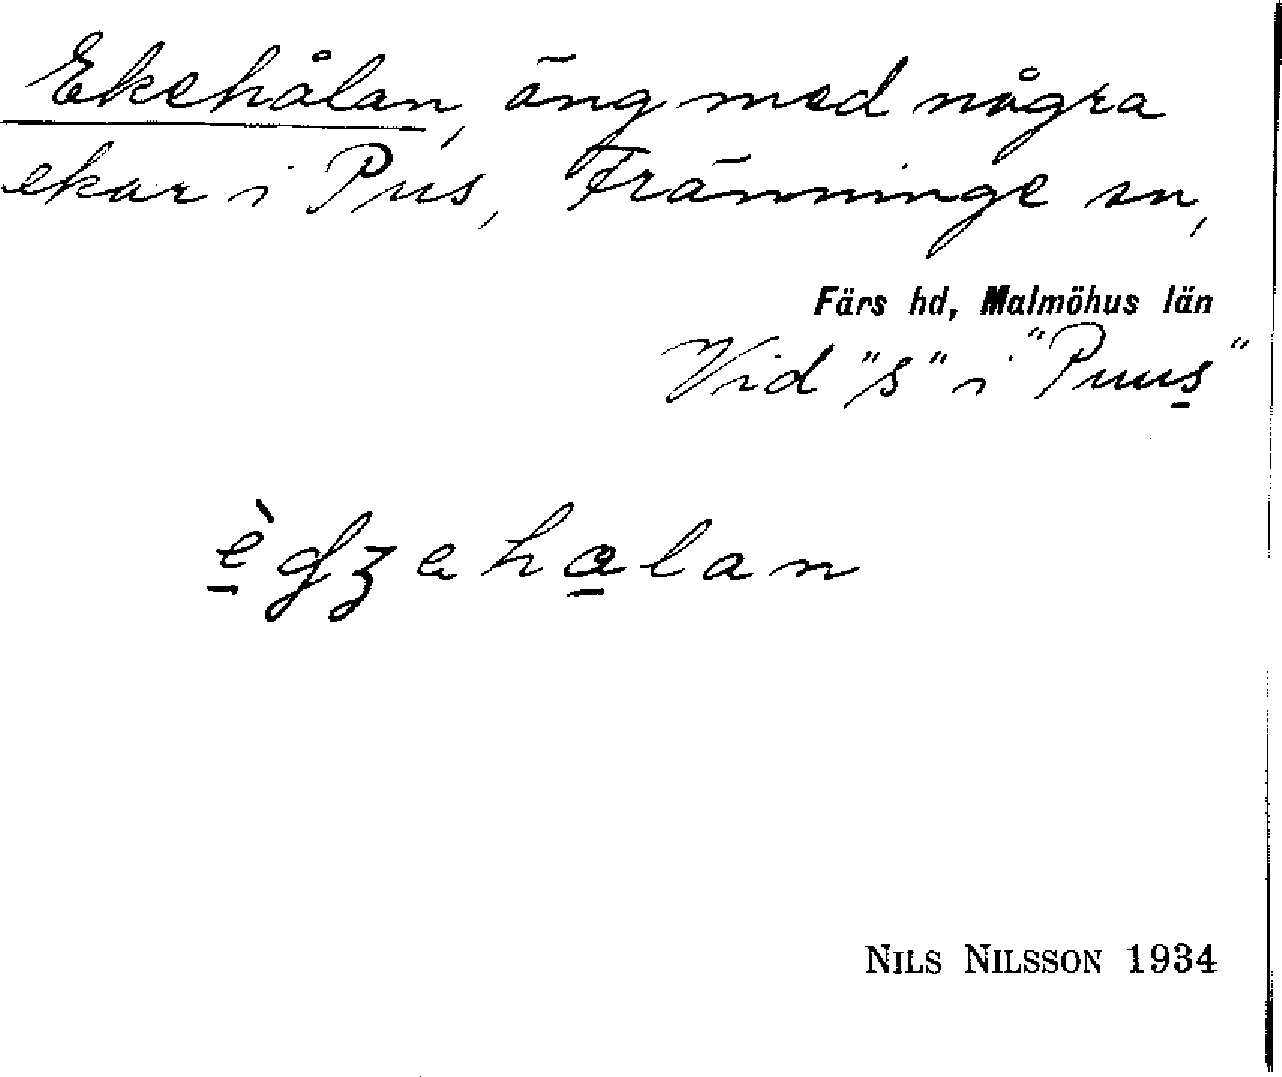 Ekehålan, äng med några
ekar i Pus, Fränninge sn,
Färs hd, Malmöhus län
Vid "s" i "Puus"
NILS NILSSON 1934